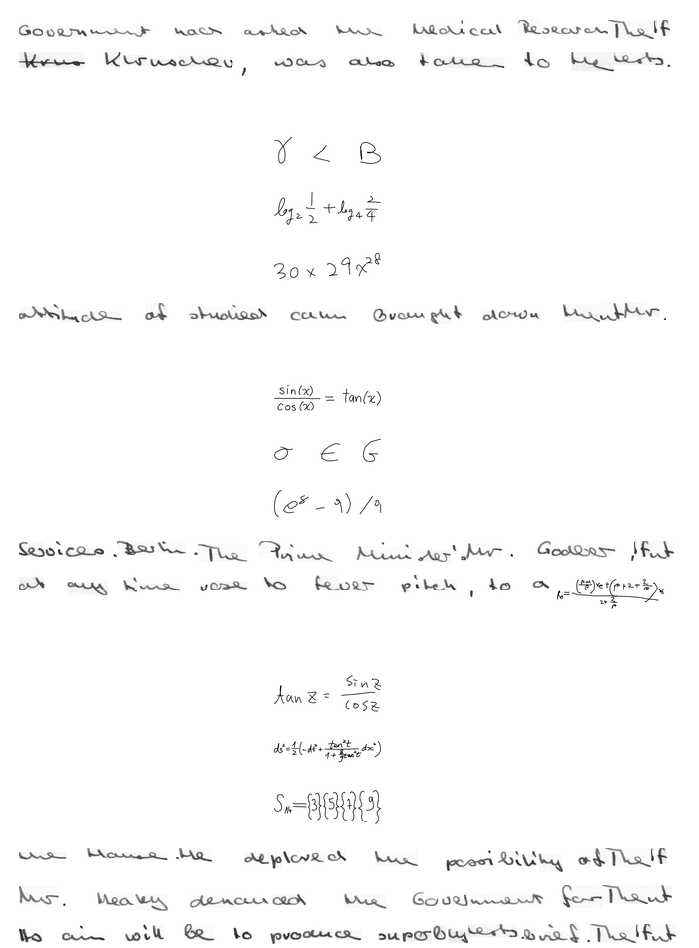 Government had asked the Medical Research The If
Krus Khruschev, was also taken to the tests.
γ < B
log₂ 1/2 + log₄ 2/4
30 × 29x²⁸
attitude of studied calm brought down the Mr.
sin(x)/cos(x) = tan(x)
σ ∈ G
(e⁸ - 9) / 9
Services. Berlin. The Prime Minister' Mr. Godber, If
at any time rose to fever pitch, to a
tan z = sin z / cos z
ds² = 1/2(-dt² + tan²t
the House. He deplored the possibility of The If
Mr. Healey denounced the Government for The
His aim will be to produce superbly tests. brief. The If